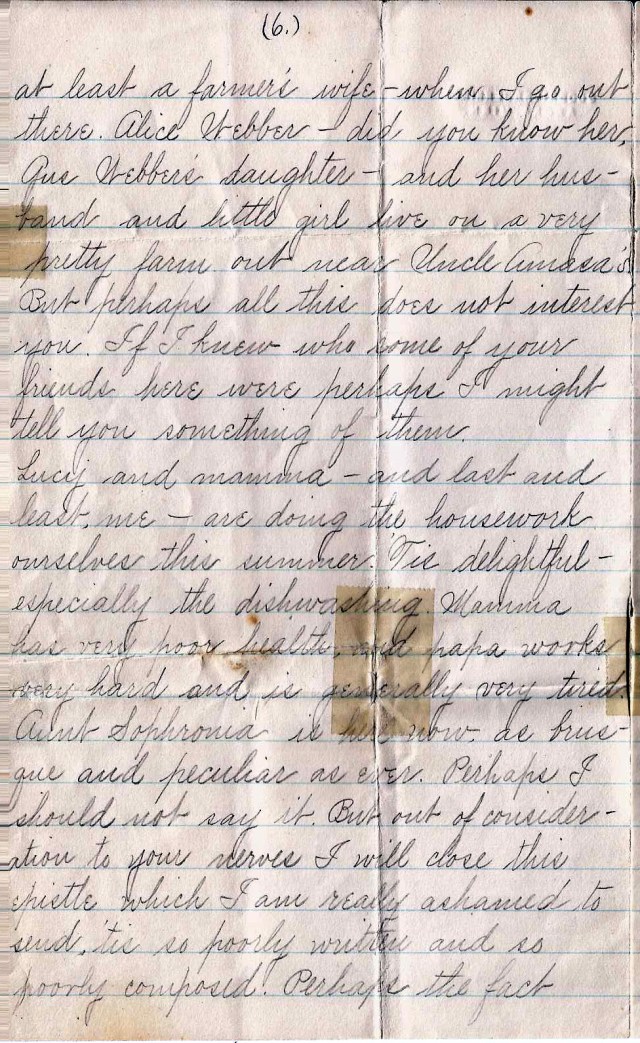 (6.)
at least a farmer's wife - when I go out
there. Alice Webber - did you know her,
Gus Webber's daughter - and her hus-
band and little girl live on a very
pretty farm out near Uncle Amasa's.
But perhaps all this does not interest
you. If I knew who some of your
friends here were perhaps I might
tell you something of them.
Lucy and mamma - and last and
least, me - are doing the housework
ourselves this summer. 'Tis delightful -
especially the dishwashing. Mamma
has very poor health, and papa works
very hard and is generally very tired.
Aunt Sophronia is here now. as brus-
que and peculiar as ever. Perhaps I
should not say it. But out of consider-
ation to your nerves I will close this
epistle which I am really ashamed to
send, 'tis so poorly written and so
poorly composed. Perhaps the fact